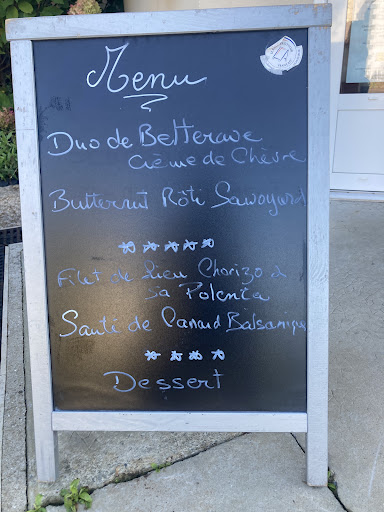 Menu
Duo de Betterave
Crème de Chèvre
Butternut Rôti Sawoyard
Filet de Lieu Chorizo &
sa Polenta
Sauté de Canard Balsamique
Dessert